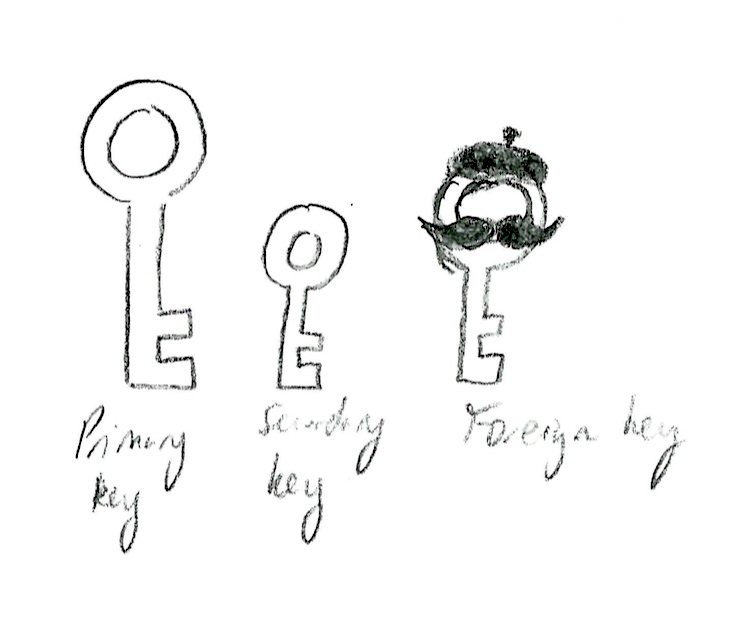 Primary
key
Secondary
key
Foreign key